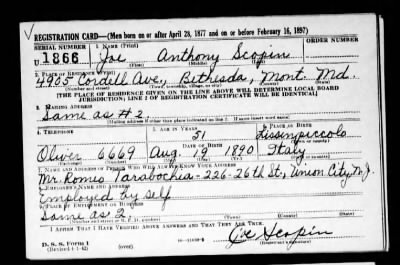 REGISTRATION CARD—(Men born on or after April 28, 1877 and on or before February 16, 1897)
SERIAL NUMBER 1. NAME (Print) ORDER NUMBER
U 1866 Joe Anthony Scopin
(First) (Middle) (Last)
2. PLACE OF RESIDENCE (Print)
4905 Cordell Ave., Bethesda, Mont. Md.
(Number and street) (Town, township, village, or city) (County) (State)
[THE PLACE OF RESIDENCE GIVEN ON THE LINE ABOVE WILL DETERMINE LOCAL BOARD
JURISDICTION; LINE 2 OF REGISTRATION CERTIFICATE WILL BE IDENTICAL]
3. MAILING ADDRESS
Same as #2.
[Mailing address if other than place indicated on line 2. If same insert word same]
4. TELEPHONE 5. AGE IN YEARS 6. PLACE OF BIRTH
51 Lussinpiccolo
DATE OF BIRTH (Town or county)
Oliver 6669 Aug. 19 1890 Italy
(Exchange) (Number) (Mo.) (Day) (Yr.) (State or country)
7. NAME AND ADDRESS OF PERSON WHO WILL ALWAYS KNOW YOUR ADDRESS
Mr. Romeo Tarabochia-226-26th St, Union City N.J.
8. EMPLOYER'S NAME AND ADDRESS
Employed by self
9. PLACE OF EMPLOYMENT OR BUSINESS
Same as 2.
(Number and street or R. F. D. number) (Town) (County) (State)
I AFFIRM THAT I HAVE VERIFIED ABOVE ANSWERS AND THAT THEY ARE TRUE.
D. S. S. Form 1 Joe Scopin
(Revised 4-1-42) (over) (Registrant's signature)